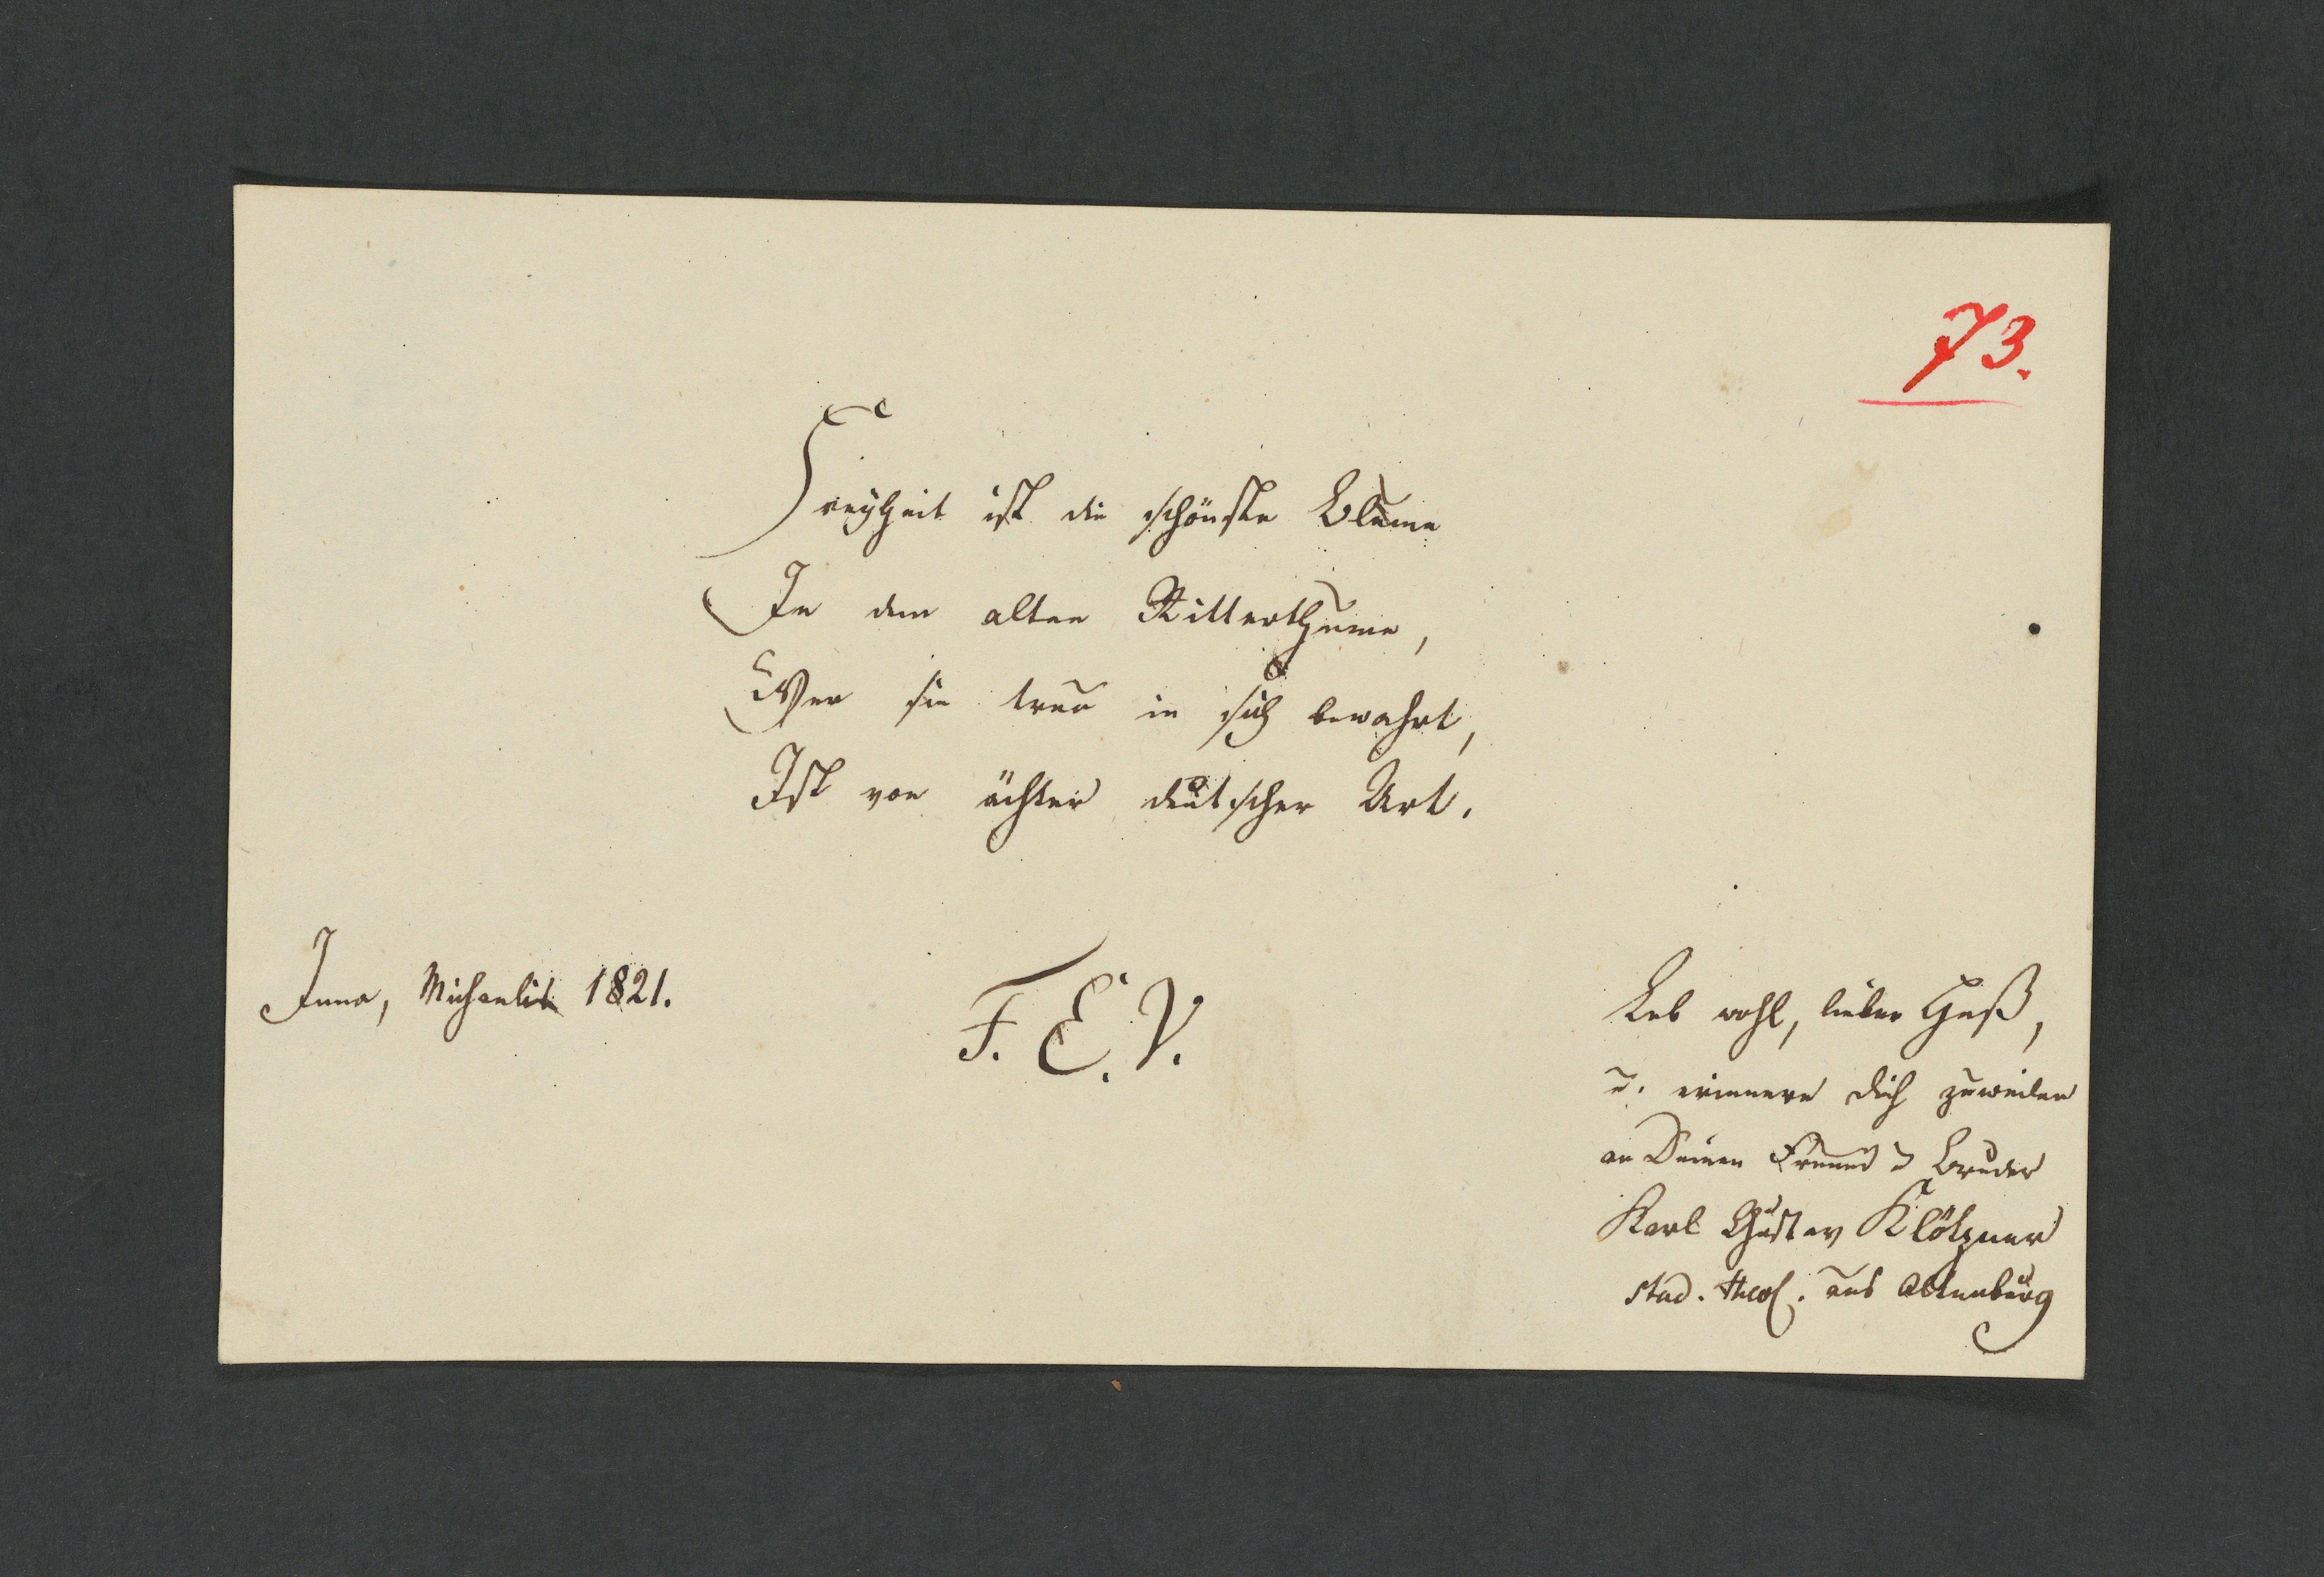 73.
Freyheit ist die schönste Blume
In dem alten Ritterthume,
Wer sie treu in sich bewahrt,
Ist von ächter deutscher Art.
Jena, Michaelis 1821.
F. E. V.
Leb wohl, lieber Heß,
u. erinnere Dich zuweilen
an Deinen Freund u Bruder
Karl Gustav Klötzner
stud. theol. aus Altenburg